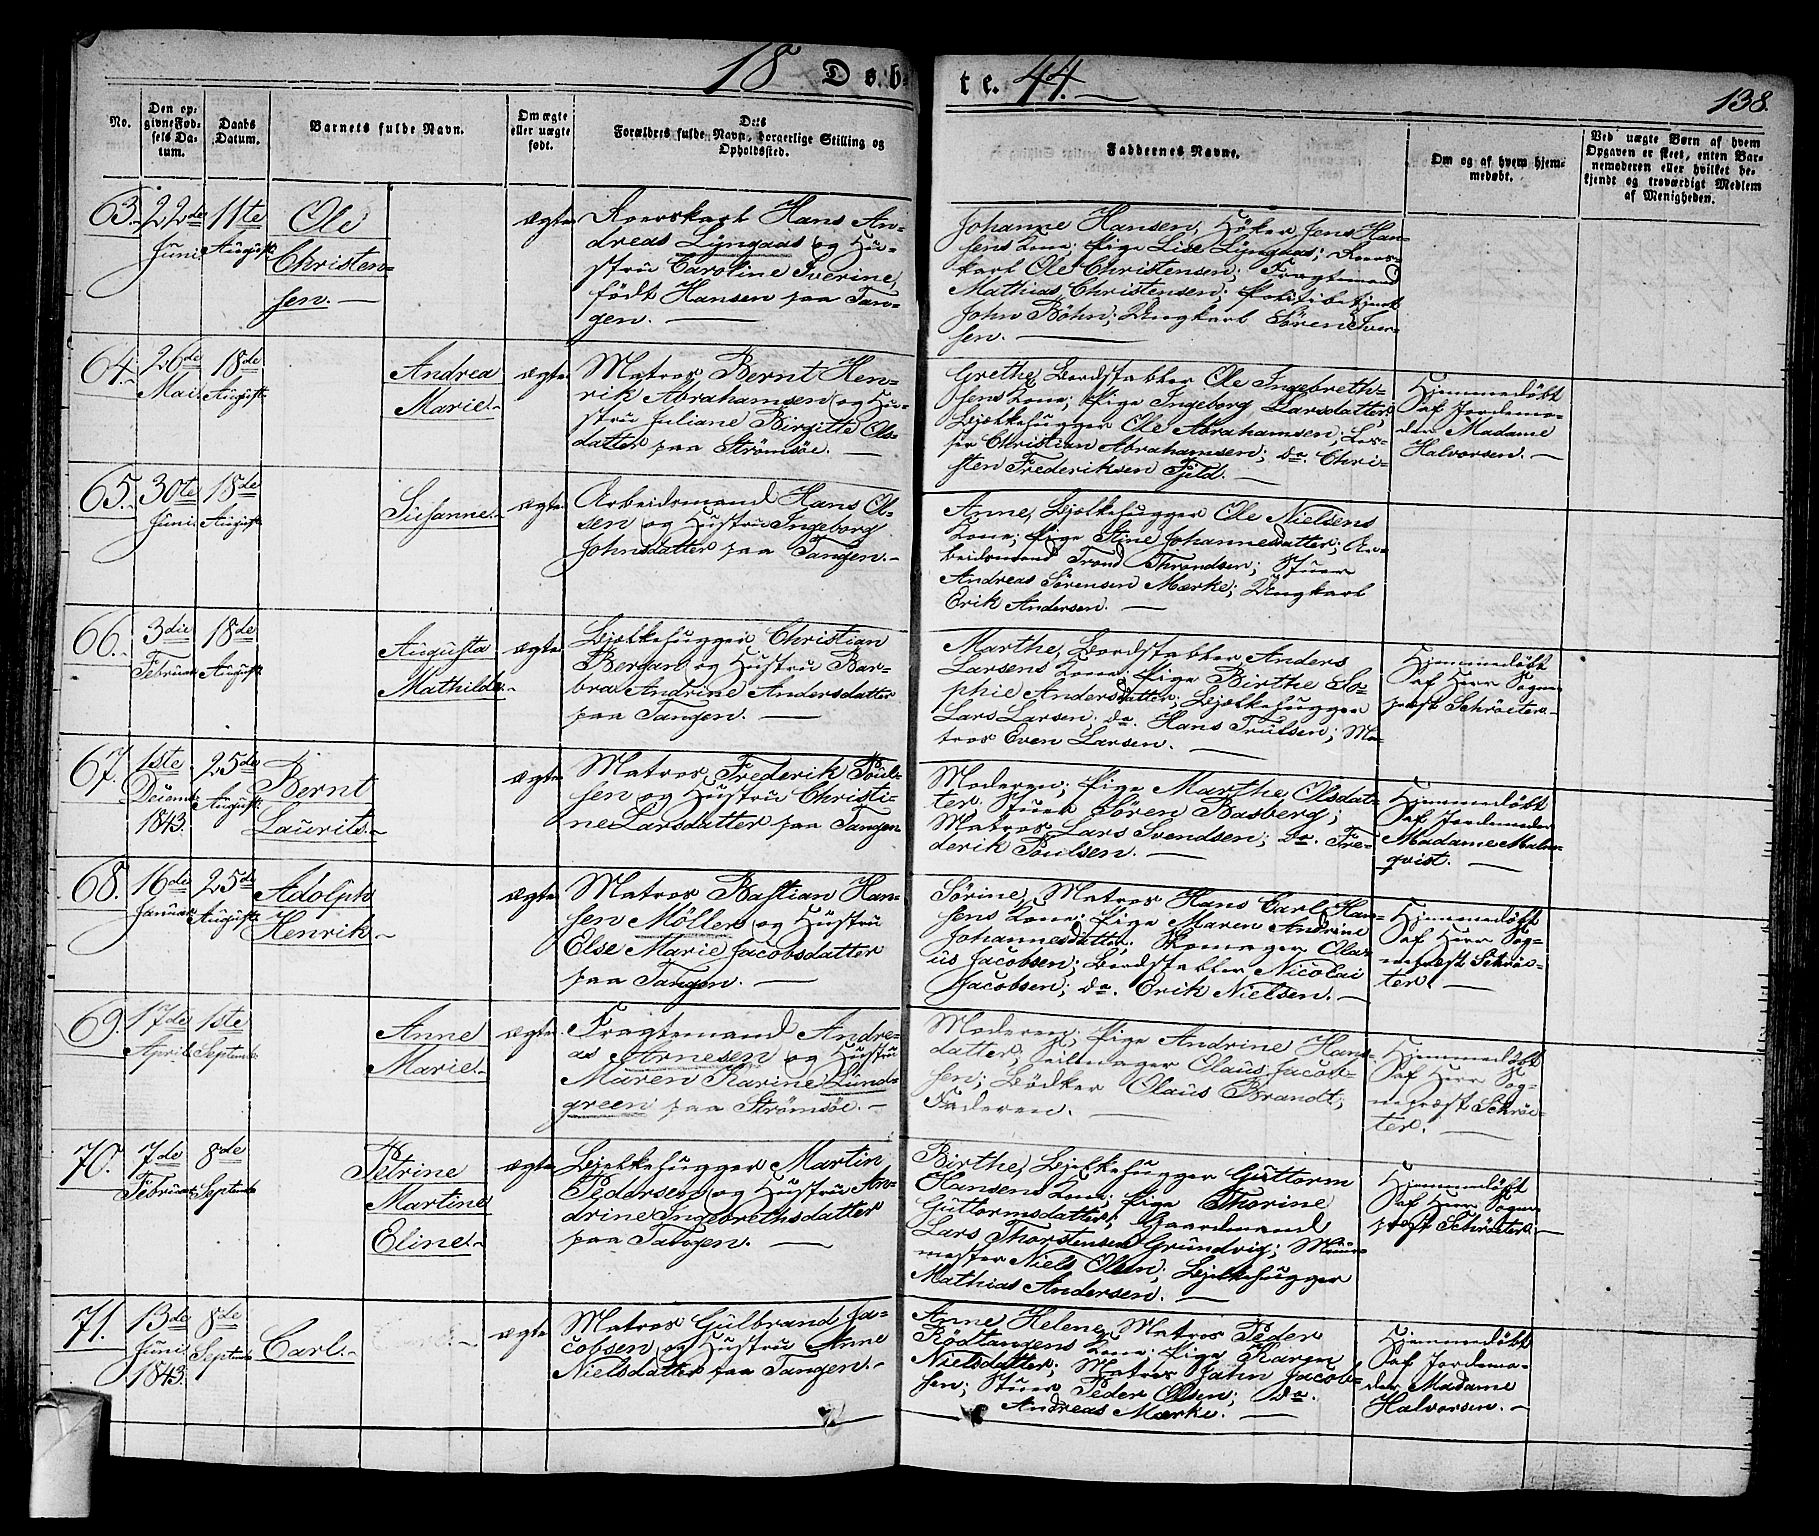 18 Døb-
te. 44.
138.
No.
Den op-
givne Fød-
sels Da-
tum.
Daabs
Datum.
Barnets fulde Navn.
Om ægte
eller uægte
født.
Dets
Forældres fulde Navn, borgerlige Stilling og
Opholdssted.
Faddernes Navne.
Om og af hvem hjem-
medøbt.
Ved uægte Børn af hvem
Opgaven er skeet, enten Bar-
nemoderen eller hvilket be-
kjendt og troværdigt Medlem
af Menigheden.
63.
22de
Juni
11te
August
Ole
Christen-
sen.
ægte
Roerskarl Hans An-
dreas Lyngaas og Hu-
stru Caroline Iverine,
født Hansen paa Tan-
gen.
Johanne Hansen, Høker Jens Han-
sens Kone; Pige Lise Lyngaas; Roers-
karl Ole Christensen; Fragtemand
Mathias Christensen; Politibetjent
John Bøhn; Ungkarl Søren Iver-
sen.
64.
26de
Mai
18de
August
Andrea
Marie.
ægte
Matros Bernt Hen-
rik Abrahamsen og Hu-
stru Juliane Birgitte Ols-
datter paa Strømsøe.
Grethe, Bordstabler Ole Ingebreth-
sens Kone; Pige Ingeborg Larsdatter;
Bjelkehugger Ole Abrahamsen; Los-
ser Christian Abrahamsen; do. Chri-
sten Frederiksen Fjeld.
Hjemmedøbt
af Jordemo-
der Madame
Halvorsen.
65.
30te
Juni
18de
August
Susanne.
ægte
Arbeidsmand Hans Ol-
sen og Hustru Ingeborg
Johnsdatter paa Tangen.
Anne, Bjelkehugger Ole Nielsens
Kone; Pige Stine Johannesdatter; Ar-
beidsmand Trond Throndsen; Stuer
Andreas Sørensen Mærke; Ungkarl
Erik Andersen.
66.
3die
Februar
18de
August
Augusta
Mathilde.
ægte
Bjelkehugger Christian
Bergan og Hustru Bar-
bra Andrine Andersdatter
paa Tangen.
Marthe, Bordstabler Anders
Larsens Kone; Pige Birthe So-
phie Andersdatter; Bjelkehugger
Lars Larsen; do. Hans Trulsen; Ma-
tros Even Larsen.
Hjemmedøbt
af Herr Sogne-
præst Schrøeter.
67.
1ste
Decemb.
1843.
25de
August
Bernt
Laurits.
ægte
Matros Frederik Poul-
sen og Hustru Christi-
ne Larsdatter paa Tangen
Moderen; Pige Marthe Olsdat-
ter; Stuer Søren Basberg;
Matros Lars Svendsen; do. Fre-
derik Poulsen.
Hjemmedøbt
af Jordemoder
Madame Malm-
qvist.
68.
16de
Januar
25de
August
Adolph
Henrik.
ægte
Matros Bastian Han-
sen Møller og Hustru
Else Marie Jacobsdatter
paa Tangen.
Sørine, Matros Hans Carl Han-
sens Kone; Pige Maren Andrine
Johannesdatter; Skomager Ola-
us Jacobsen; Bordstabler Nicolai
Jacobsen; do. Erik Nielsen.
Hjemmedøbt
af Herr Sog-
nepræst Schrøe-
ter.
69.
17de
April
1ste
Septemb.
Anne
Marie.
ægte
Fragtemand Andre-
as Arnesen og Hustru
Maren Karine Lund-
green paa Strømsøe.
Moderen; Pige Andrine Hans-
datter; Seilmager Olaus Jacob-
sen; Bødker Olaus Brandt;
Faderen.
Hjemmedøbt
af Herr Sog-
nepræst Schrøe-
ter.
70.
7de
Februar
8de
Septemb.
Petrine
Martine
Eline.
ægte
Bjelkehugger Martin
Pedersen og Hustru An-
drine Ingebrethsdatter
paa Tangen.
Birthe, Bjelkehugger Guttorm
Hansens Kone; Pige Thorine
Guttormsdatter; Gaardmand
Lars Thorstensen Grundvig; Muur-
mester Niels Olsen; Bjelkehugger
Mathias Andersen.
Hjemmedøbt
af Herr Sogne-
præst Schrøeter.
71.
13de
Juni
1843.
8de
Septemb.
Carl.
ægte
Matros Gulbrand Ja-
cobsen og Hustru Anne
Nielsdatter paa Tangen.
Anne Helene, Matros Peder
Rødtangens Kone; Pige Karen
Nielsdatter; Matros John Jacob-
sen; Stuer Peder Olsen; do.
Andreas Mærke.
Hjemmedøbt
af Jordemo-
der Madame
Halvorsen.